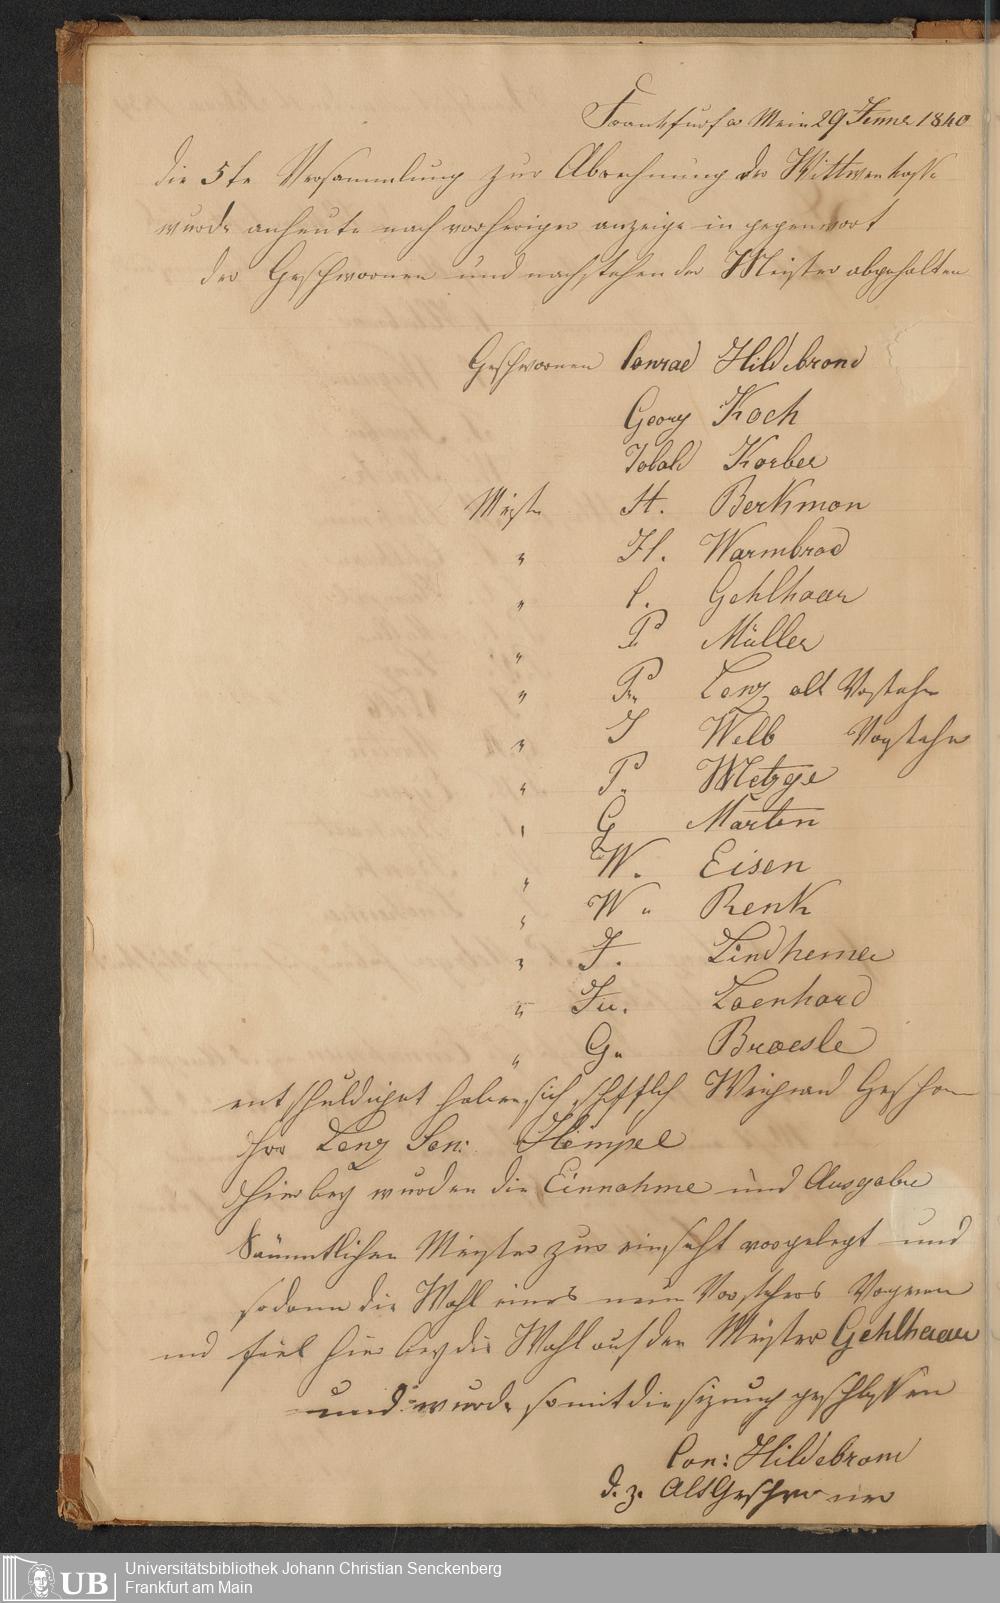 Frankfurt a Mein 29 Jenner 1840
die 5te Versammlung zur Abrechnung der Wittwenkasse
wurde anheute nach vorheriger anzeige in gegenwart
der Geschwornen und nachstehender Meister abgehalten
Geschwornen Conrad Hildebrand
Georg Koch
Korber
Meister H. Berkman
" H. Warmbrod
" C. Gehlhaar
" P. Müller
" P. Lenz alt Vorsteher
" J Welb Vorsteher
" P. Metzge
" G Marten
" W. Eisen
" W " Renk
" F. Lindheimer
" Fr. Loenhard
" G. Braesle
entschuldiget haben sich schriftlich Weigand
Herr Lenz Sen: Hempel
Hierbey wurden die Einnahme und Ausgabe
Sämmtlichen Meister zur einsicht vorgelegt und
sodann die Wahl eines neuen Vorstehers
und fiel hier bey die Wahl auf den Meister Gehlhaar
und wurde somit die sizung geschlossen
Con: Hildebrand
d. z. Alt Geschworner
Universitätsbibliothek Johann Christian Senckenberg
UB Frankfurt am Main